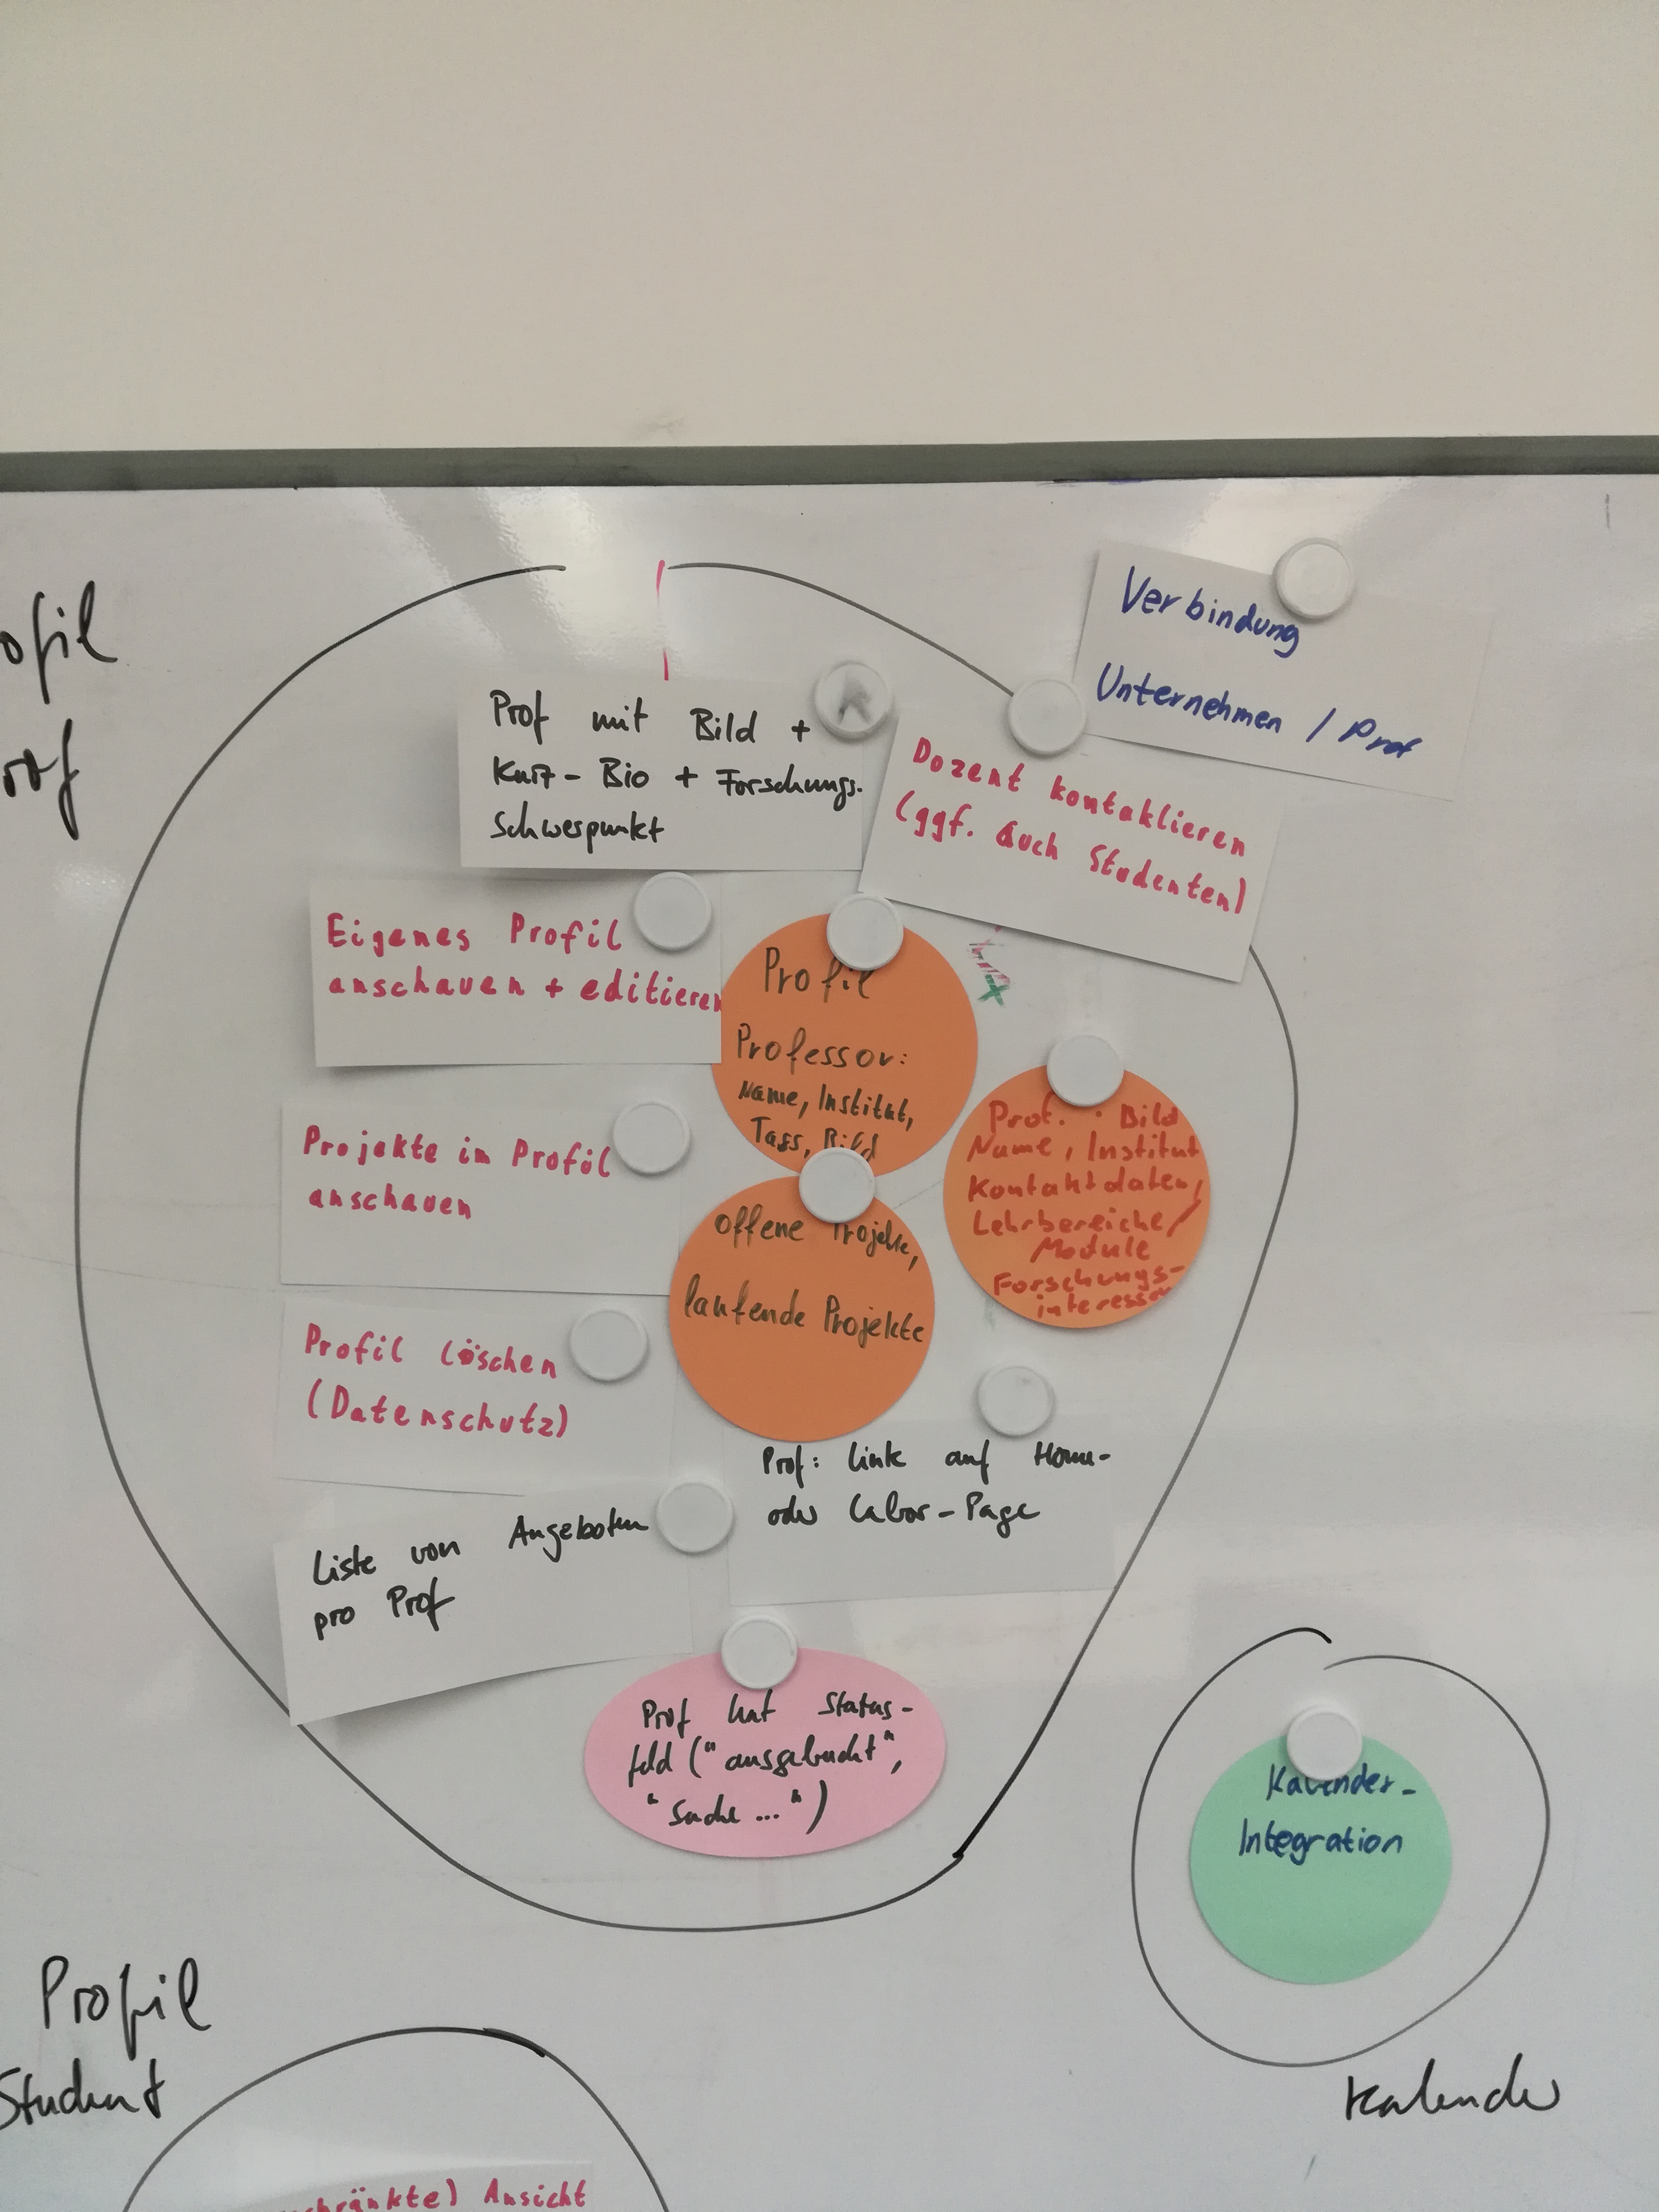 Verbindung
Unternehmen / Prof
Prof mit Bild +
Kurz-Bio + Forschungs-
Schwerpunkt
Dozent kontaktieren
(ggf. auch Studenten)
Eigenes Profil
anschauen + editieren
Profil
Professor:
Name, Institut,
Tags, Bild
Prof. : Bild
Name, Institut
Kontaktdaten,
Lehrbereiche/
Module
Forschungs-
interessen
Projekte im Profil
anschauen
offene Projekte,
laufende Projekte
Profil löschen
(Datenschutz)
Prof: Link auf Home-
oder Labor-Page
Liste von Angeboten
pro Prof
Prof hat Status-
feld ("ausgebucht",
"Suche ...")
Kalender-
Integration
Kalender
Profil
Student
Ansicht